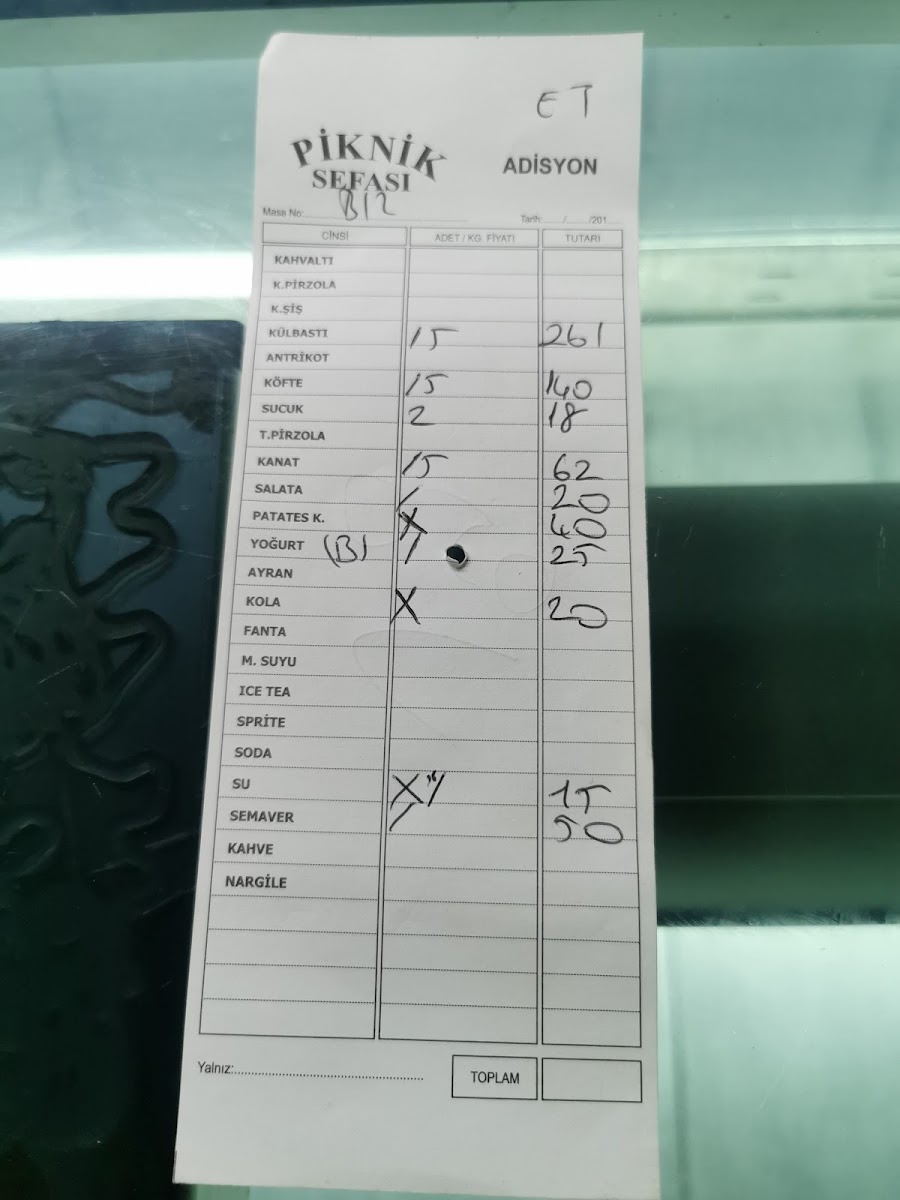 ET
PİKNİK
SEFASI
ADİSYON
Masa No:.......... B12 Tarih: ..../..../201....
CİNSİ ADET / KG. FİYATI TUTARI
KAHVALTI
K.PİRZOLA
K.ŞİŞ
KÜLBASTI 15 261
ANTRİKOT
KÖFTE 15 140
SUCUK 2 18
T.PİRZOLA
KANAT 15 62
SALATA / 20
PATATES K. X 40
YOĞURT (B) / 25
AYRAN
KOLA X 20
FANTA
M. SUYU
ICE TEA
SPRİTE
SODA
SU X / 15
SEMAVER / 50
KAHVE
NARGİLE
Yalnız:..........
TOPLAM